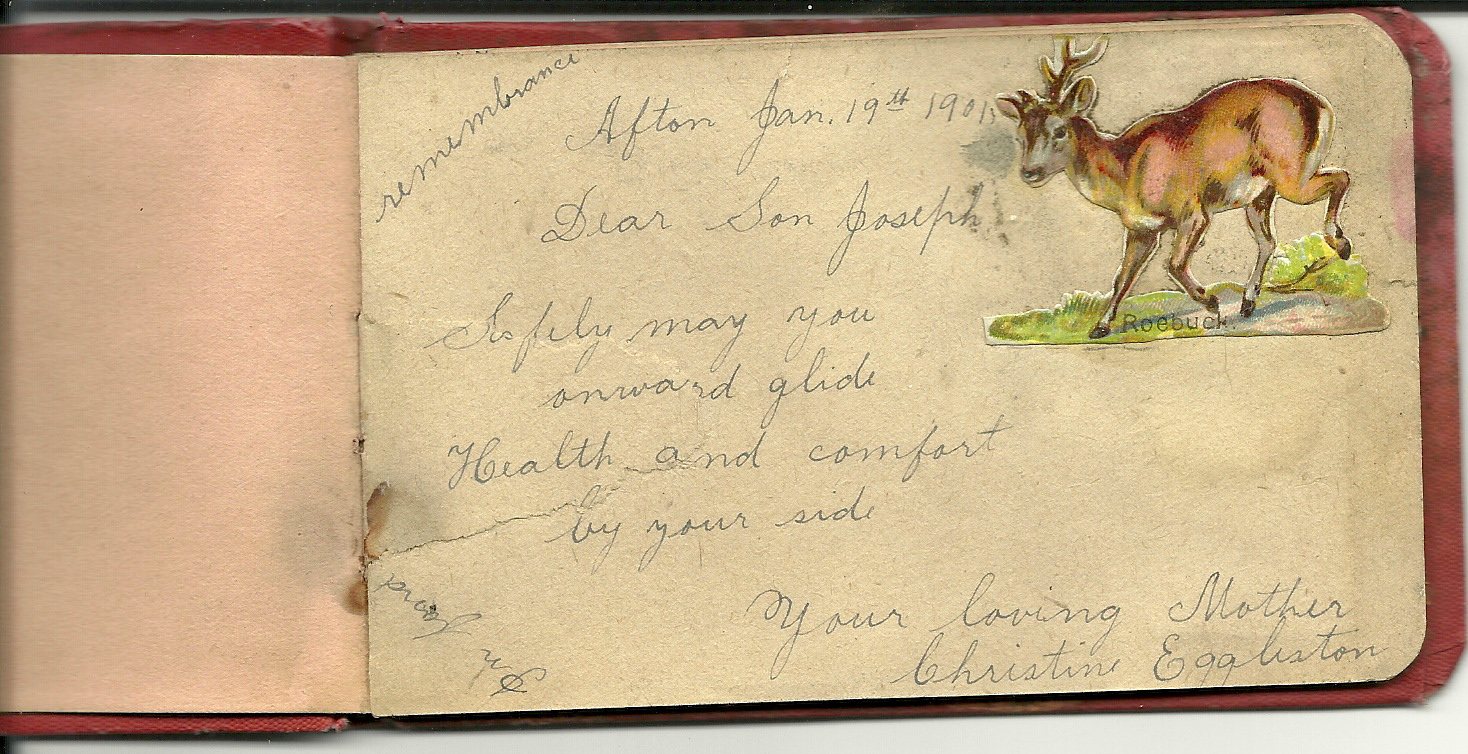 remembrance
Afton Jan. 19th 1901,
Dear Son Joseph
Safely may you
onward glide
Health and comfort
by your side
Your loving Mother
Christine Eggleston
In
fond
Roebuck.